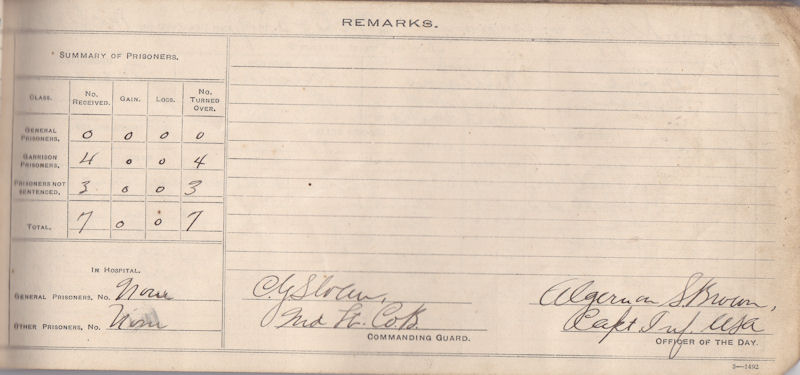 REMARKS.
SUMMARY OF PRISONERS.
CLASS. No. RECEIVED. GAIN. LOSS. No. TURNED OVER.
GENERAL PRISONERS. 0 0 0 0
GARRISON PRISONERS. 4 0 0 4
PRISONERS NOT SENTENCED. 3 0 0 3
TOTAL. 7 0 0 7
IN HOSPITAL.
GENERAL PRISONERS, No. None
OTHER PRISONERS, No. None
C. G. Sloan,
Co. B.
COMMANDING GUARD.
Algernon S. Brown,
Capt Inf. USA
OFFICER OF THE DAY.
3—1492